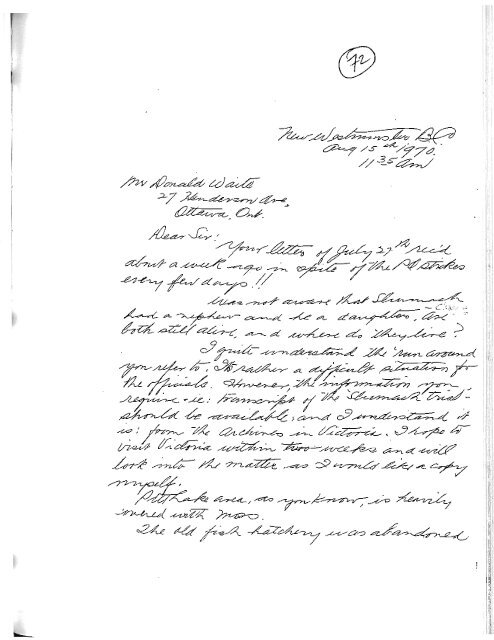 72
New Westminster B.C.
Aug 15th 1970.
11 35 am
Mr Donald Waite
27 Henderson Ave,
Ottawa, Ont.
Dear Sir:
Your letter of July 27th rec'd
about a week ago in spite of the P.O. strikes
every few days.!!
Was not aware that Slumach
had a nephew and he a daughter, are
both still alive, and where do they live?
I quite understand the "run around
you refer to. Its rather a difficult situation for
the officials. However, the information you
require - ie: transcript of the Slumach trial -
should be available, and I understand it
is: from the Archives in Victoria. I hope to
visit Victoria within two weeks and will
look into the matter as I would like a copy
myself.
Pitt Lake area, as you know, is heavily
covered with moss.
The old fish hatchery was abandoned